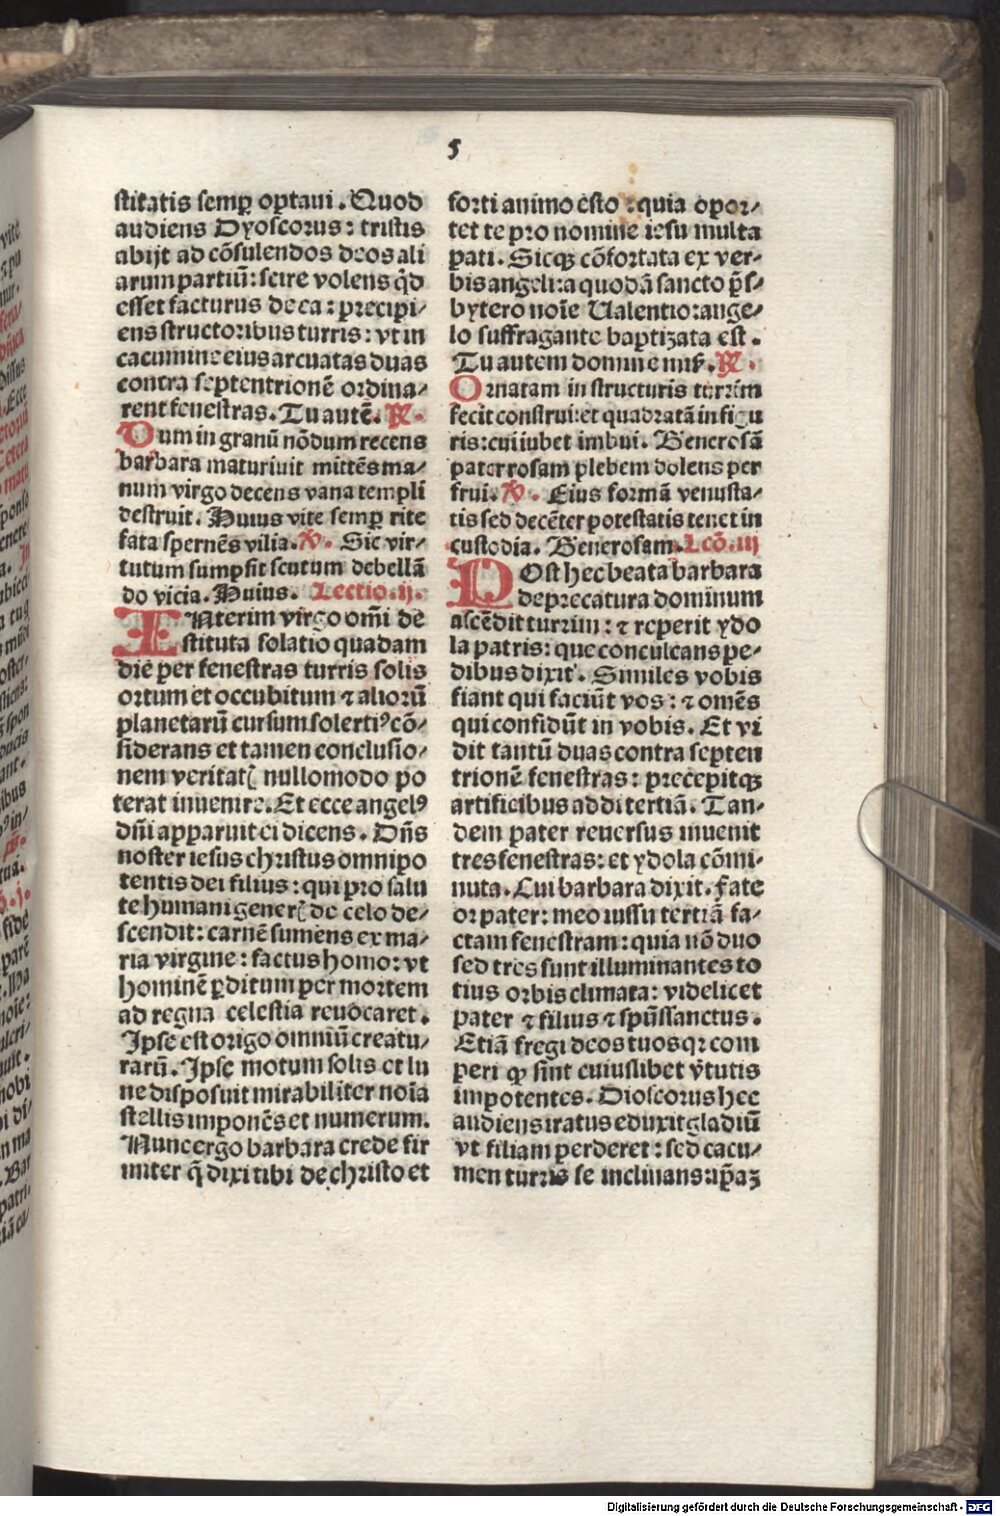 5
stitatis semꝑ optaui. Quod
audiens Dyoscorus: tristis
abijt ad cōsulendos deos ali
arum partiū: scire volens q̄d
esset facturus de ea: precipi-
ens structoribus turris: vt in
cacumine eius arcuatas duas
contra septentrionē ordina-
rent fenestras. Tu autē. ℟.
Dum in granū nōdum recens
barbara maturiuit mittēs ma-
num virgo decens vana templi
destruit. Huius vite semꝑ rite
fata spernēs vilia. ℣. Sic vir-
tutum sumpsit scutum debellā
do vicia. Huius. Lectio.ij.
INterim virgo om̄i de
stituta solatio quadam
die per fenestras turris solis
ortum et occubitum ⁊ aliorū
planetarū cursum solertiꝰ cō-
siderans et tamen conclusio-
nem veritatꝭ nullomodo po
terat inuenire. Et ecce angelꝰ
dn̄i apparuit ei dicens. Dn̄s
noster iesus christus omnipo
tentis dei filius: qui pro salu
te humani generꝭ de celo de-
scendit: carnē sumens ex ma-
ria virgine: factus homo: vt
hominē ꝑditum per mortem
ad regna celestia reuocaret.
Ipse est origo omniū creatu-
rarū. Ipse motum solis et lu
ne disposuit mirabiliter noīa
stellis imponēs et numerum.
Nunc ergo barbara crede fir
miter q̄ dixi tibi de christo et
forti animo esto: quia opor-
tet te pro nomine iesu multa
pati. Sicqꝫ cōfortata ex ver-
bis angeli: a quodā sancto p̄s-
bytero noīe Ualentio: ange-
lo suffragante baptizata est.
Tu autem domine mis̄. ℟.
Ornatam in structuris turrim
fecit construi: et quadratā in figu
ris: cui iubet imbui. Benerosā
pater rosam plebem dolens per
frui. ℣. Eius formā venusta-
tis sed decēter potestatis tenet in
custodia. Benerosam. Lcō.iij
POst hec beata barbara
deprecatura dominum
ascēdit turrim: ⁊ reperit ydo
la patris: que conculcans pe-
dibus dixit. Similes vobis
fiant qui faciūt vos: ⁊ omēs
qui confidūt in vobis. Et vi
dit tantū duas contra septen
trionē fenestras: precepitqꝫ
artificibus addi tertiā. Tan-
dem pater reuersus inuenit
tres fenestras: et ydola cōmi-
nuta. Cui barbara dixit. Fate
or pater: meo iussu tertiā fa-
ctam fenestram: quia nō duo
sed tres sunt illuminantes to
tius orbis climata: videlicet
pater ⁊ filius ⁊ spūssanctus.
Etiā fregi deos tuos qꝛ com
peri ꝙ sint cuiuslibet v̄tutis
impotentes. Dioscorus hec
audiens iratus eduxit gladiū
vt filiam perderet: sed cacu-
men turris se inclinans: ip̄aꝫ
Digitalisierung gefördert durch die Deutsche Forschungsgemeinschaft - DFG